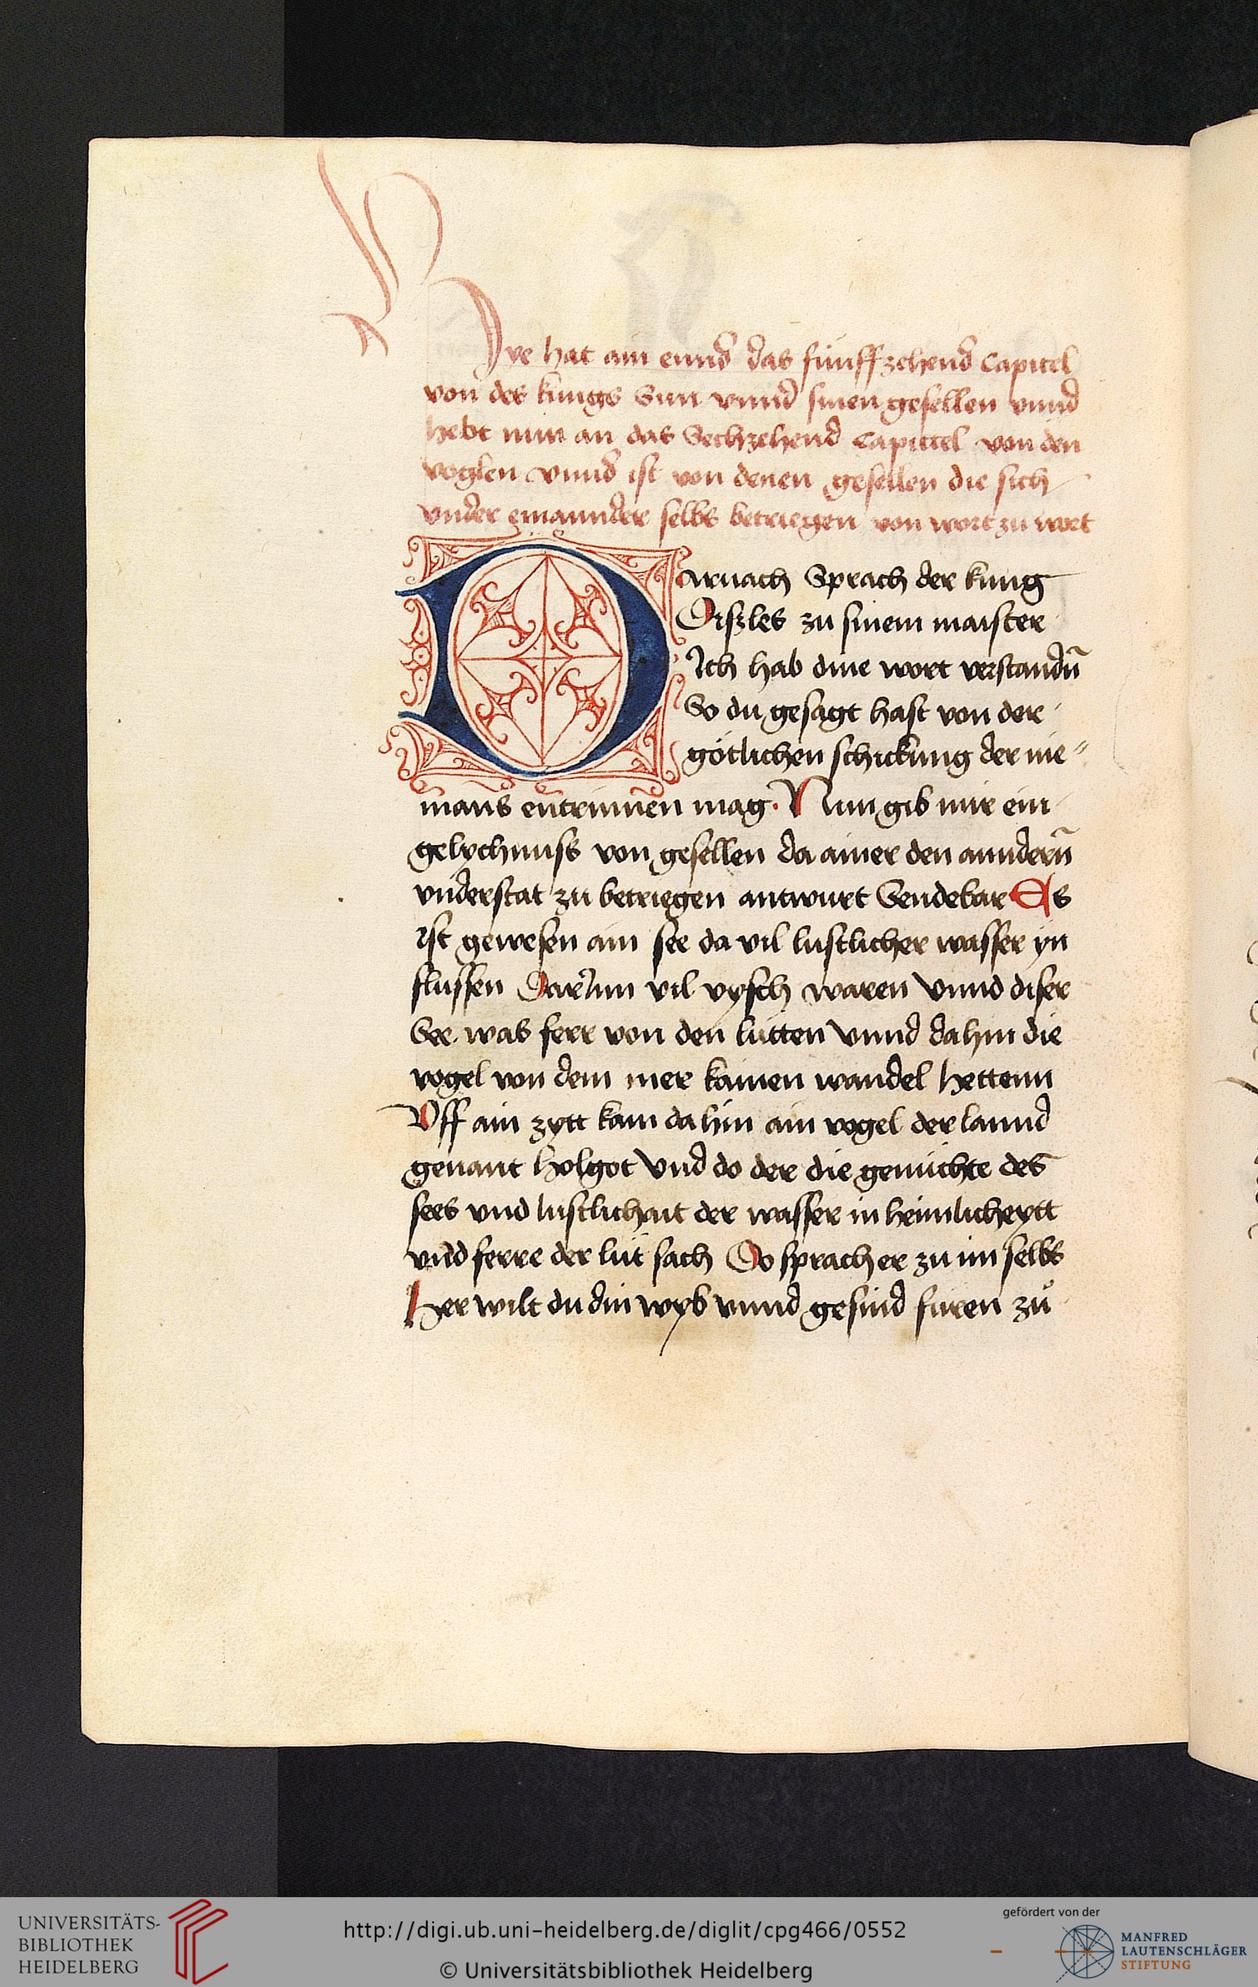 Hye hat ain ennd das fünffzehend Capitel
von des kungs Sun vnnd sinen gesellen vnnd
hebt nun an das Sechzehend Capittel von den
voglen vnnd ist von denen gesellen die sich
vnder einannder selbs betriegen von wort zu wort
Darnach Sprach der kung
Dißles zu sinem maister
Ich hab dine wort verstandn̄
So du gesagt hast von der
götlichen schickung der nie⸗
mans entrinnen mag. Nun gib mir ein
gelychnuss von gesellen da ainer den anndern̄
vnderstat zu betriegen antwurt Sendebar Es
ist gewesen ain see da vil lustlicher wasser yn
flussen Darinn vil vysch waren vnnd diser
See was ferr von den lütten vnnd dahin die
vogel von dem mer kamen wandel hettenn
Vff ain zytt kam da hin ain vogel der lannd
genant holgot vnd do der die genüchte des
sees vnd lustlichait der wasser in heimlicheytt
vnd ferre der lüt sach Do sprach er zu im selbs
Her wilt du din wyb vnnd gesind füren zů
UNIVERSITÄTS-
BIBLIOTHEK
HEIDELBERG
http://digi.ub.uni-heidelberg.de/diglit/cpg466/0552
© Universitätsbibliothek Heidelberg
gefördert von der
MANFRED
LAUTENSCHLÄGER
STIFTUNG